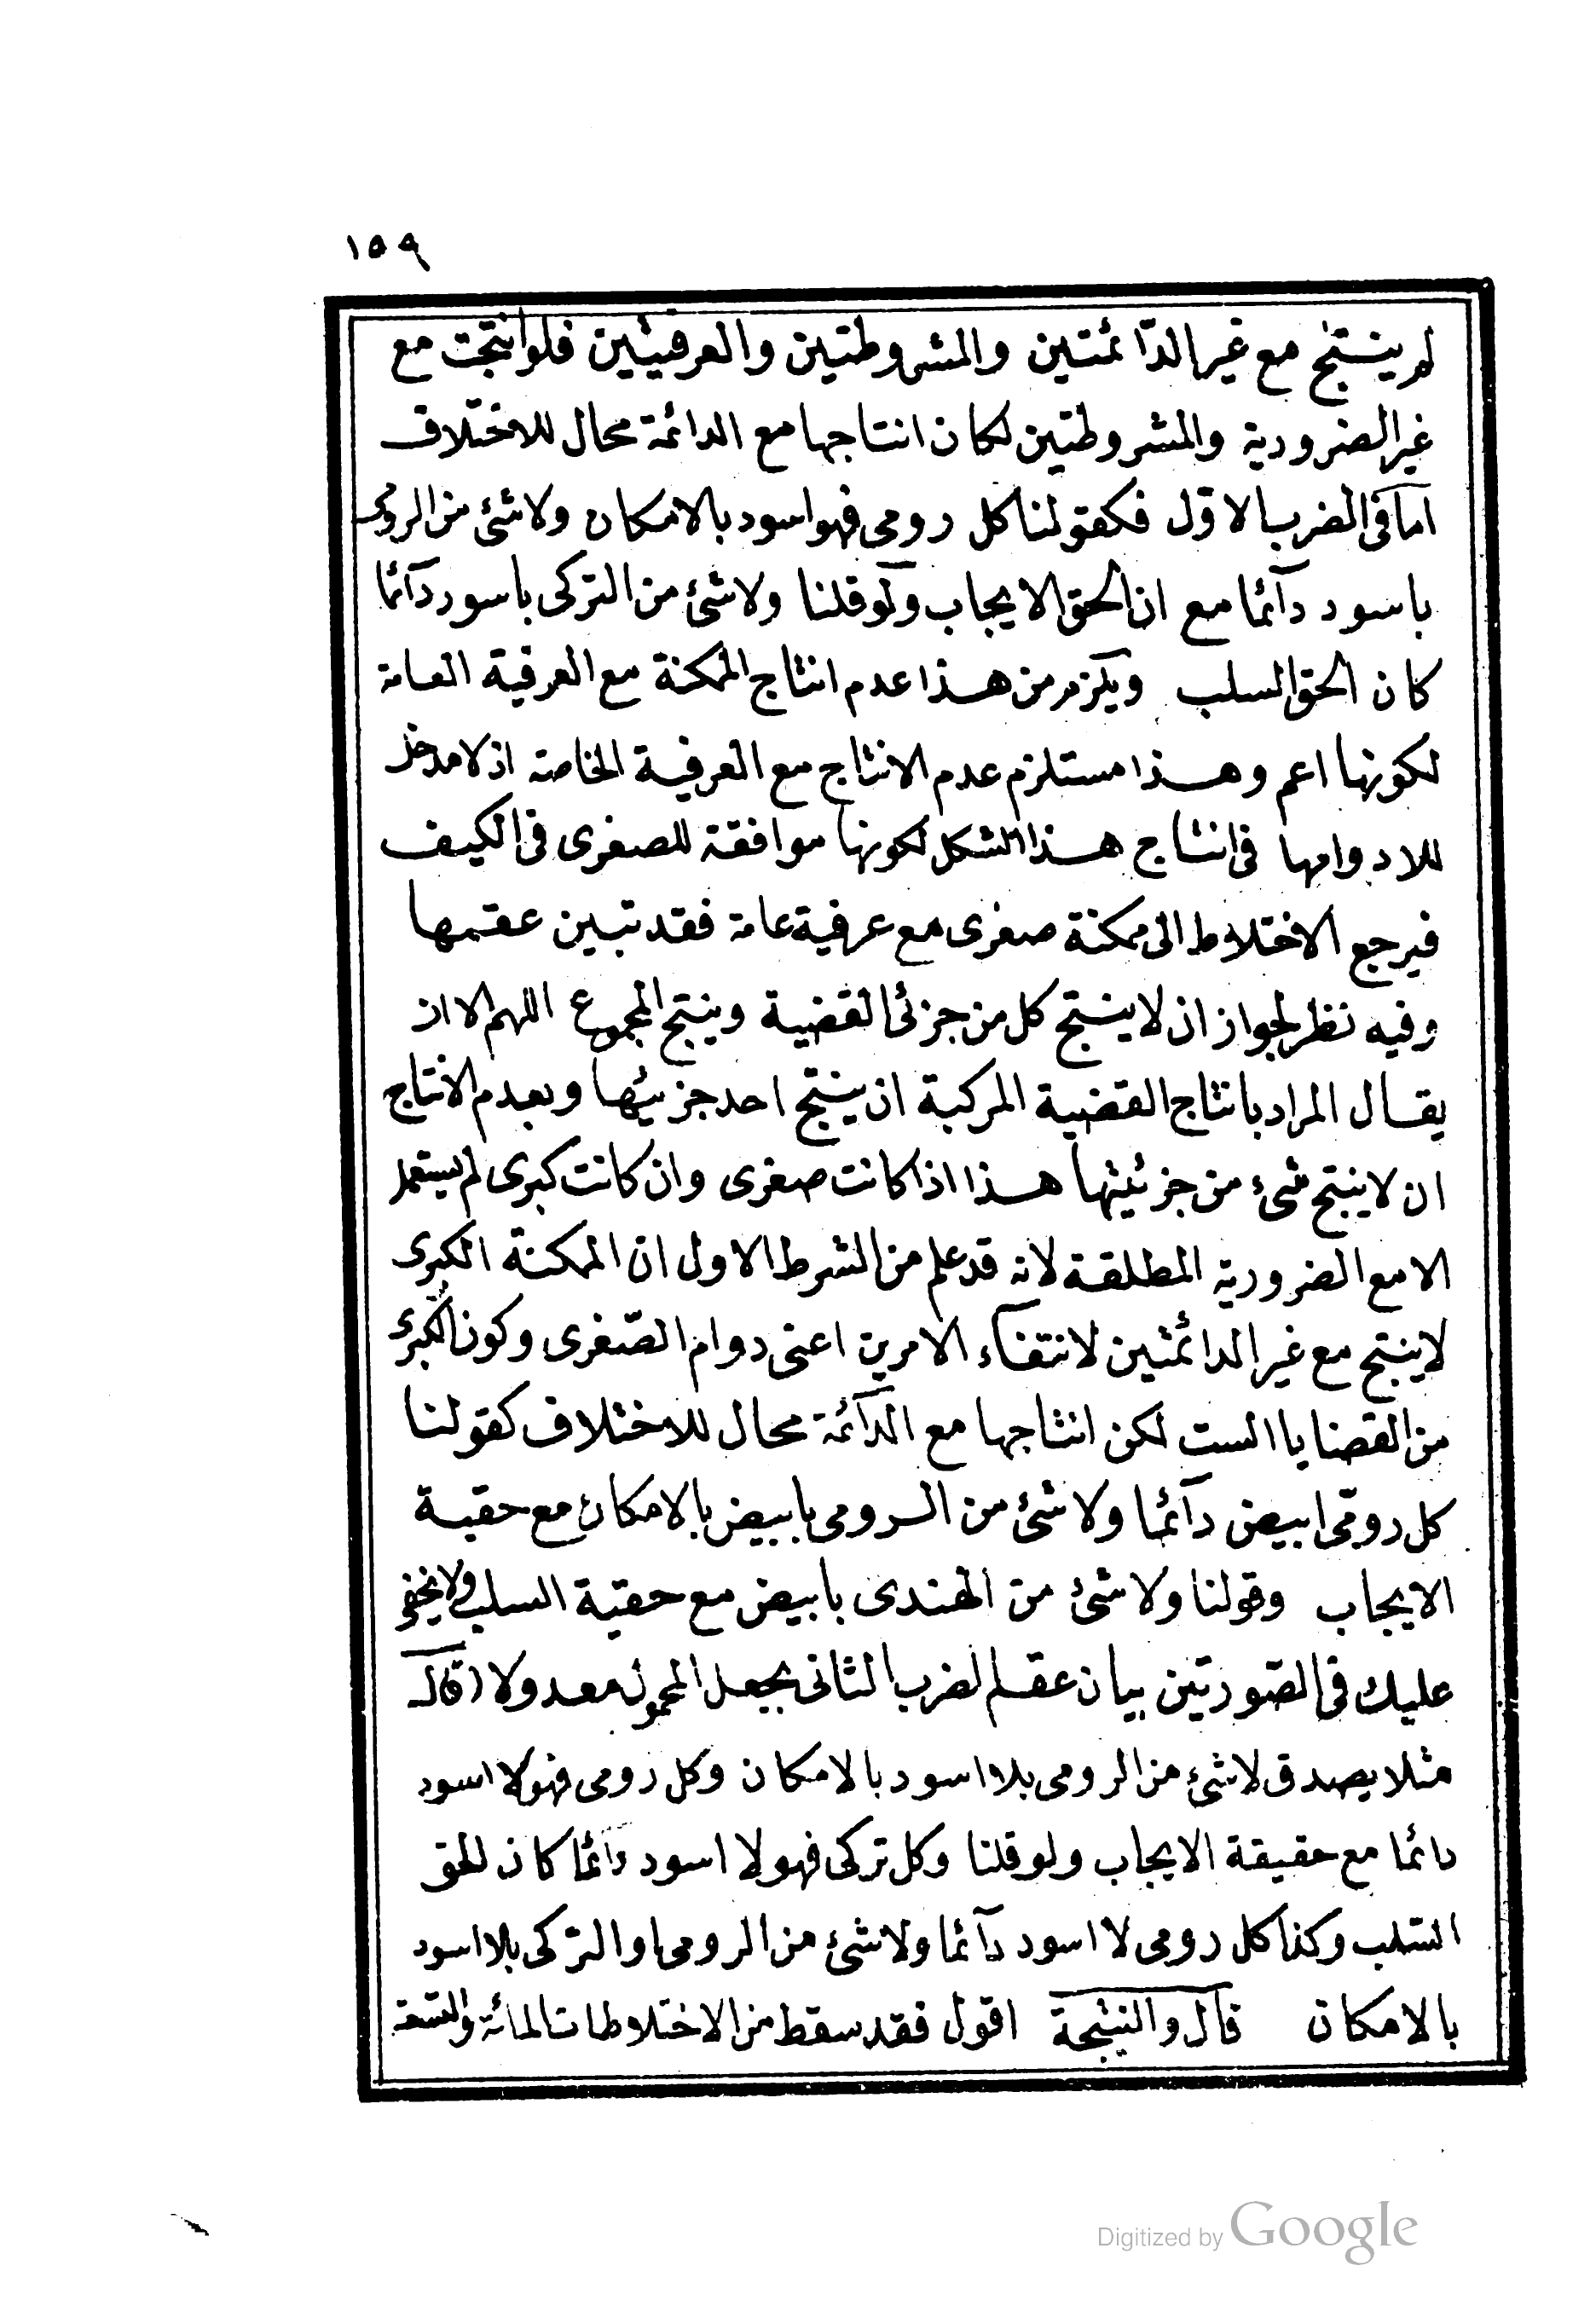 ١٥٩
لم ينتج مع غير الدّائمتين والمشروطتين والعرفيتين فلوانتجت مع
غير الضرورية والمشروطتين لكان انتاجها مع الدائمة محال للاختلاف
اما فى الضرب الاوّل فكقولنا كل رومى فهو اسود بالامكان ولا شئ من الرومى
باسود دآئما مع ان الحق الايجاب ولو قلنا ولا شئ من التركى باسود دآئما
كان الحق السلب ويلزم من هذا عدم انتاج الممكنة مع العرفية العامة
لكونها اعم وهذا مستلزم عدم الانتاج مع العرفية الخاصة اذ لا مدخل
للادوامها فى انتاج هذا الشكل لكونها موافقة للصغرى فى الكيف
فيرجع الاختلاط الى ممكنة صغرى مع عرفية عامة فقد تبين عقمها
وفيه نظر لجواز ان لا ينتج كل من جزئى القضية وينتج المجموع اللهم الا ان
يقال المراد بانتاج القضية المركبة ان ينتج احد جزئيها وبعدم الانتاج
ان لا ينتج شئ من جزئيها هذا اذا كانت صغرى وان كانت كبرى لم يستعمل
الا مع الضرورية المطلقة لانه قد علم من الشرط الاول ان الممكنة الكبرى
لا ينتج مع غير الدائمتين لانتفاء الامرين اعنى دوام الصّغرى وكون الكبرى
من القضايا الست لكن انتاجها مع الدّآئمة محال للاختلاف كقولنا
كل رومّى ابيض دآئما ولا شئ من الرومى بابيض بالامكان مع حقية
الايجاب وقولنا ولا شئ من الهندى بابيض مع حقية السلب ولا يخفى
عليك فى الصّورتين بيان عقم الضرب الثانى بجعل المحمول معدولا اذ قال
مثلا يصدق لا شئ من الرومى بلا اسود بالامكان وكل رومى فهو لا اسود
دائما مع حقيقة الايجاب ولو قلنا وكل تركى فهو لا اسود دائما كان الحق
السّلب وكذا كل رومى لا اسود دآئما ولا شئ من الرومى او التركى بلا اسود
بالامكان قال والنتيجة اقول فقد سقط من الاختلاطات المائة والتسعة
Digitized by Google